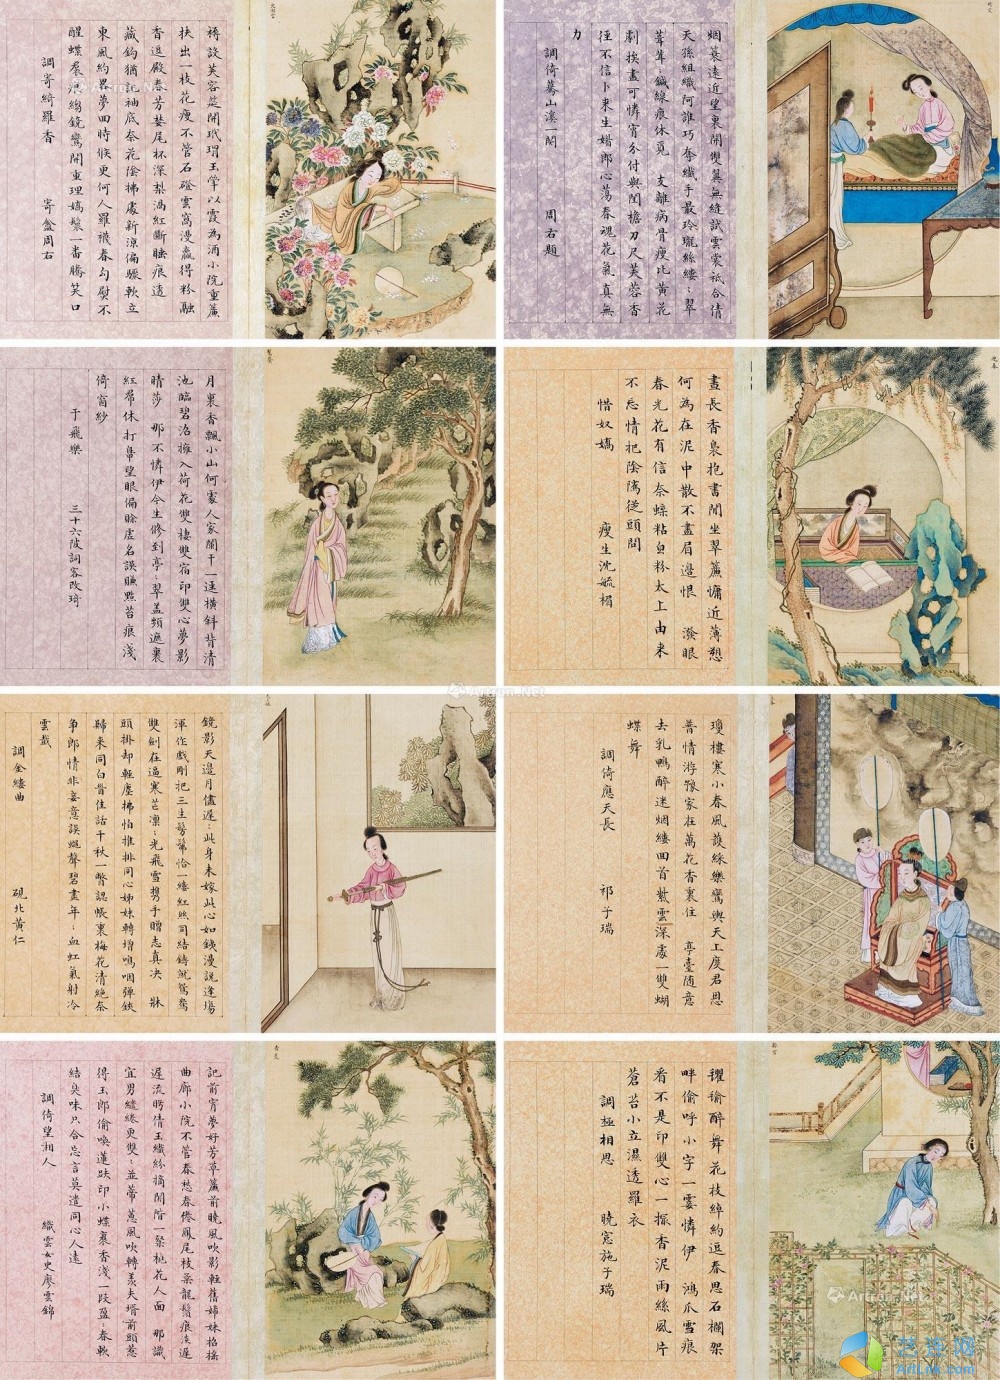 褥設芙容筵開玳瑁玉筆以霞為酒小院重簾
扶出一枝花瘦不管石磴雲窩漫贏得粉融
香逗殿春芳婪尾杯深梨渦紅斷睡痕透
藏鈎猶記袖底奈花陰拂處新涼偏驟軟立
東風約畧夢回時候更何人羅襪春勾熨不
醒蝶裠縐鏡鸞開重理嬌鬟一番騰笑口
調寄綺羅香 寄龕周右
烟裊遠近望裏開雙翼無縫試雲裳祗合倩
天孫組織阿誰巧奪纖手最玲瓏絲縷〻翠
茸茸鍼線痕休覓 支離病骨瘦比黃花
劇挨盡可憐宵分付與閨檐刀尺芙蓉香
徑不信卜來生婚郎心蕩春魂花氣真無
力
調倚驀山溪一闋 周右題
月裏香飄小山何處人家闌干一逕橫斜背清
池臨碧沼擁入荷花雙棲雙宿印雙心夢影
晴莎 那不憐伊今生修到亭〻翠蓋頻遮裹
紅幫休打鳧望眼偏賒虛名誤賺點苔痕淺
倚窗紗
于飛樂 三十六陂詞客改琦
晝長香裊抱書閒坐翠簾慵近薄愁
何為在泥中散不盡眉邊恨 潑眼
春光花有信奈蝶粘自粉太上由來
不忘情把陰隲從頭問
惜奴嬌 瘦生沈毓楣
鏡影天邊月儘遲〻此身未嫁此心如鐵漫說逢場
渾作戲剛把三生髣髴恰一縷紅絲同結鑄就鴛鴦
雙劍在逼寒芒凛〻光飛雪攜手贈志真決 牀
頭掛却輕塵拂怕推排同心姊妹轉增嗚咽彈鋏
歸來同白首佳話千秋一瞥認帳裏梅花清絕奈
爭郎情非妾意誤蠅聲碧盡年〻血虹氣射冷
雲截
調金縷曲 硯北黃仁
瓊樓寒小春風護綵樂鸞輿天上度君恩
普情游豫家在萬花香裏住 亭臺隨意
去乳鴨醉迷烟縷回首紫雲深處一雙蝴
蝶舞
調倚應天長 祁子瑞
記前宵夢好芳草簾前曉風吹影輕舊姊妹招搖
曲廊小院不管春愁春倦鳳尾枝柔龍鬚痕淡遲
遲流眄倩玉纖紛摘閒階一槃桃花人面 那識
宜男繾綣更雙〻並蒂蕙風吹轉羨夫壻前頭惹
得玉郎偷喚蓮趺印小蝶裹香淺一段盈〻春軟
結臭味只合忘言莫遣同心人遠
調倚望湘人 織雲女史廖雲錦
瑜醉舞花枝綽約逗春思石欄架
畔偷呼小字一霎憐伊 鴻爪雪痕
看不是印雙心一捺香泥雨絲風片
蒼苔小立濕透羅衣
調極相思 曉窓施子瑞
Artron.Net